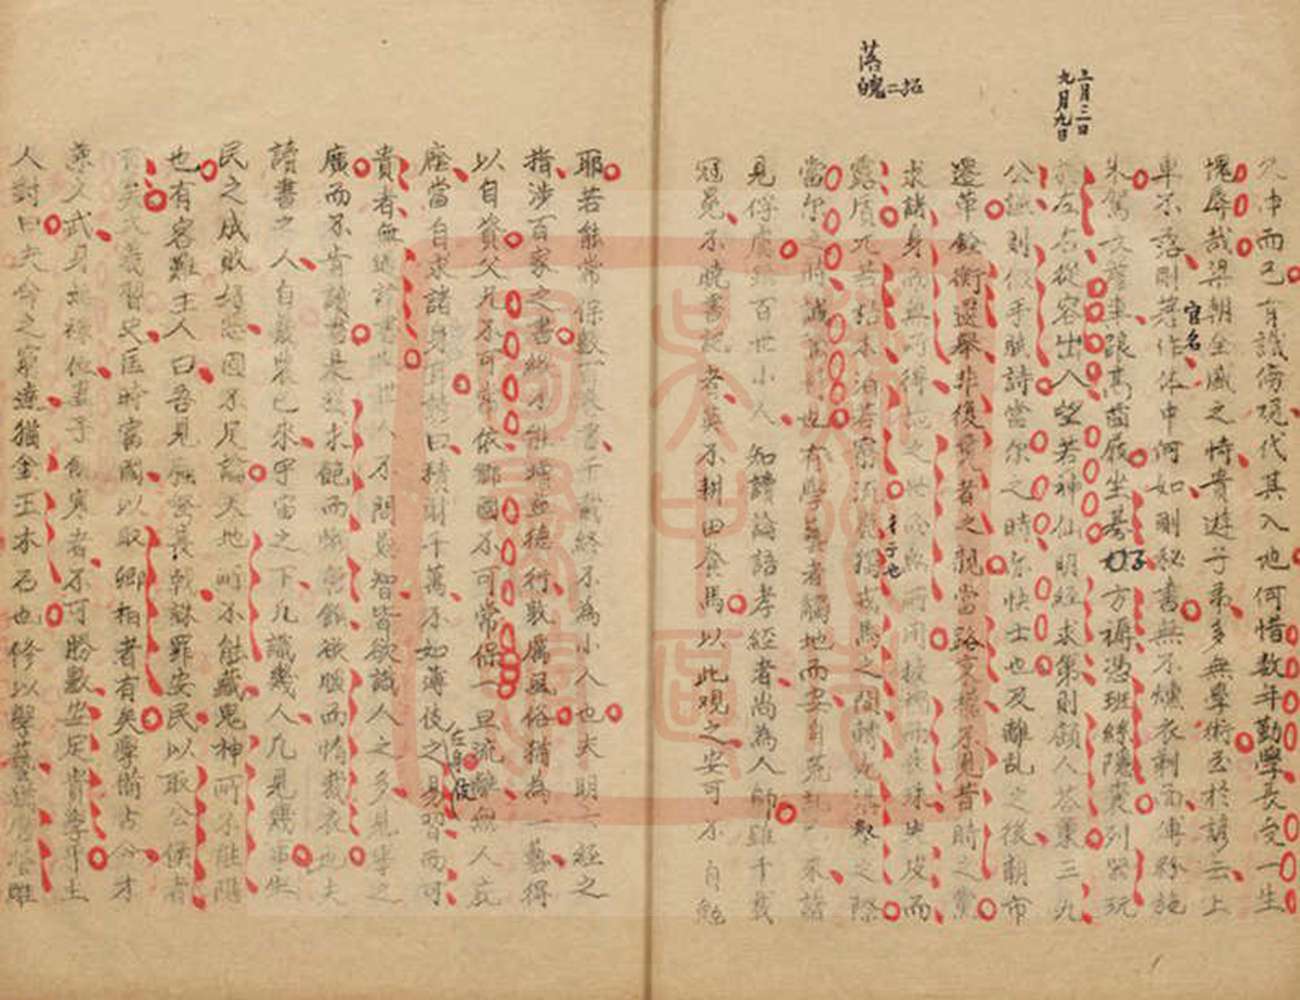 三月三日
九月九日
落魄二招
久沖而已有識傍觀代其入也何惜數年勤學長受一生
愧辱哉梁朝全盛之時貴遊子弟多無學術至於諺云上
車不落則著作体中何如則秘書無不燻衣剃面傅粉施
官名
朱駕長簷車跟高齒屐坐棊子方褥憑班絲隱囊列器玩
於左右從容出入望若神仙明經求第則顧人荅策三九
公讌則假手賦詩當尔之時亦快士也及離亂之後朝市
還革銓衡選舉非復曩者之親當路秉權不見昔時之黨
求諸身而無所得施之世而無所用披褐而喪珠失皮而
露質兀若枯木泊若窮流鹿獨戎馬之間轉死溝壑之際
當尔之時誠駑材也有學藝者觸地而安自荒亂已來諸
見俘虜雖百世小人知讀論語孝經者尚為人師雖千載
冠冕不曉書記者莫不耕田養馬以此觀之安可不自勉
耶若能常保數百卷書千載終不為小人也夫明六經之
指涉百家之書縱不能增益德行敦厲風俗猶為一藝得
以自資父兄不可常依鄉國不可常保一旦流離無人庇
廕當自求諸身耳諺曰積財千萬不如薄伎之易習而可
貴者無過讀書也世人不問愚智皆欲識人之多見事之
廣而不肯讀書是猶求飽而懶營饌欲暖而惰裁衣也夫
讀書之人自羲農已來宇宙之下凡識幾人凡見幾事生
民之成敗好惡固不足論天地所不能藏鬼神所不能隱
也有客難主人曰吾見彊弩長戟誅罪安民以取公侯者
有矣文義習史匡時富國以取卿相者有矣學備古今才
兼文武身無祿位妻子飢寒者不可勝數安足貴學乎主
人對曰夫命之窮達猶金玉木石也修以學藝猶磨瑩雕